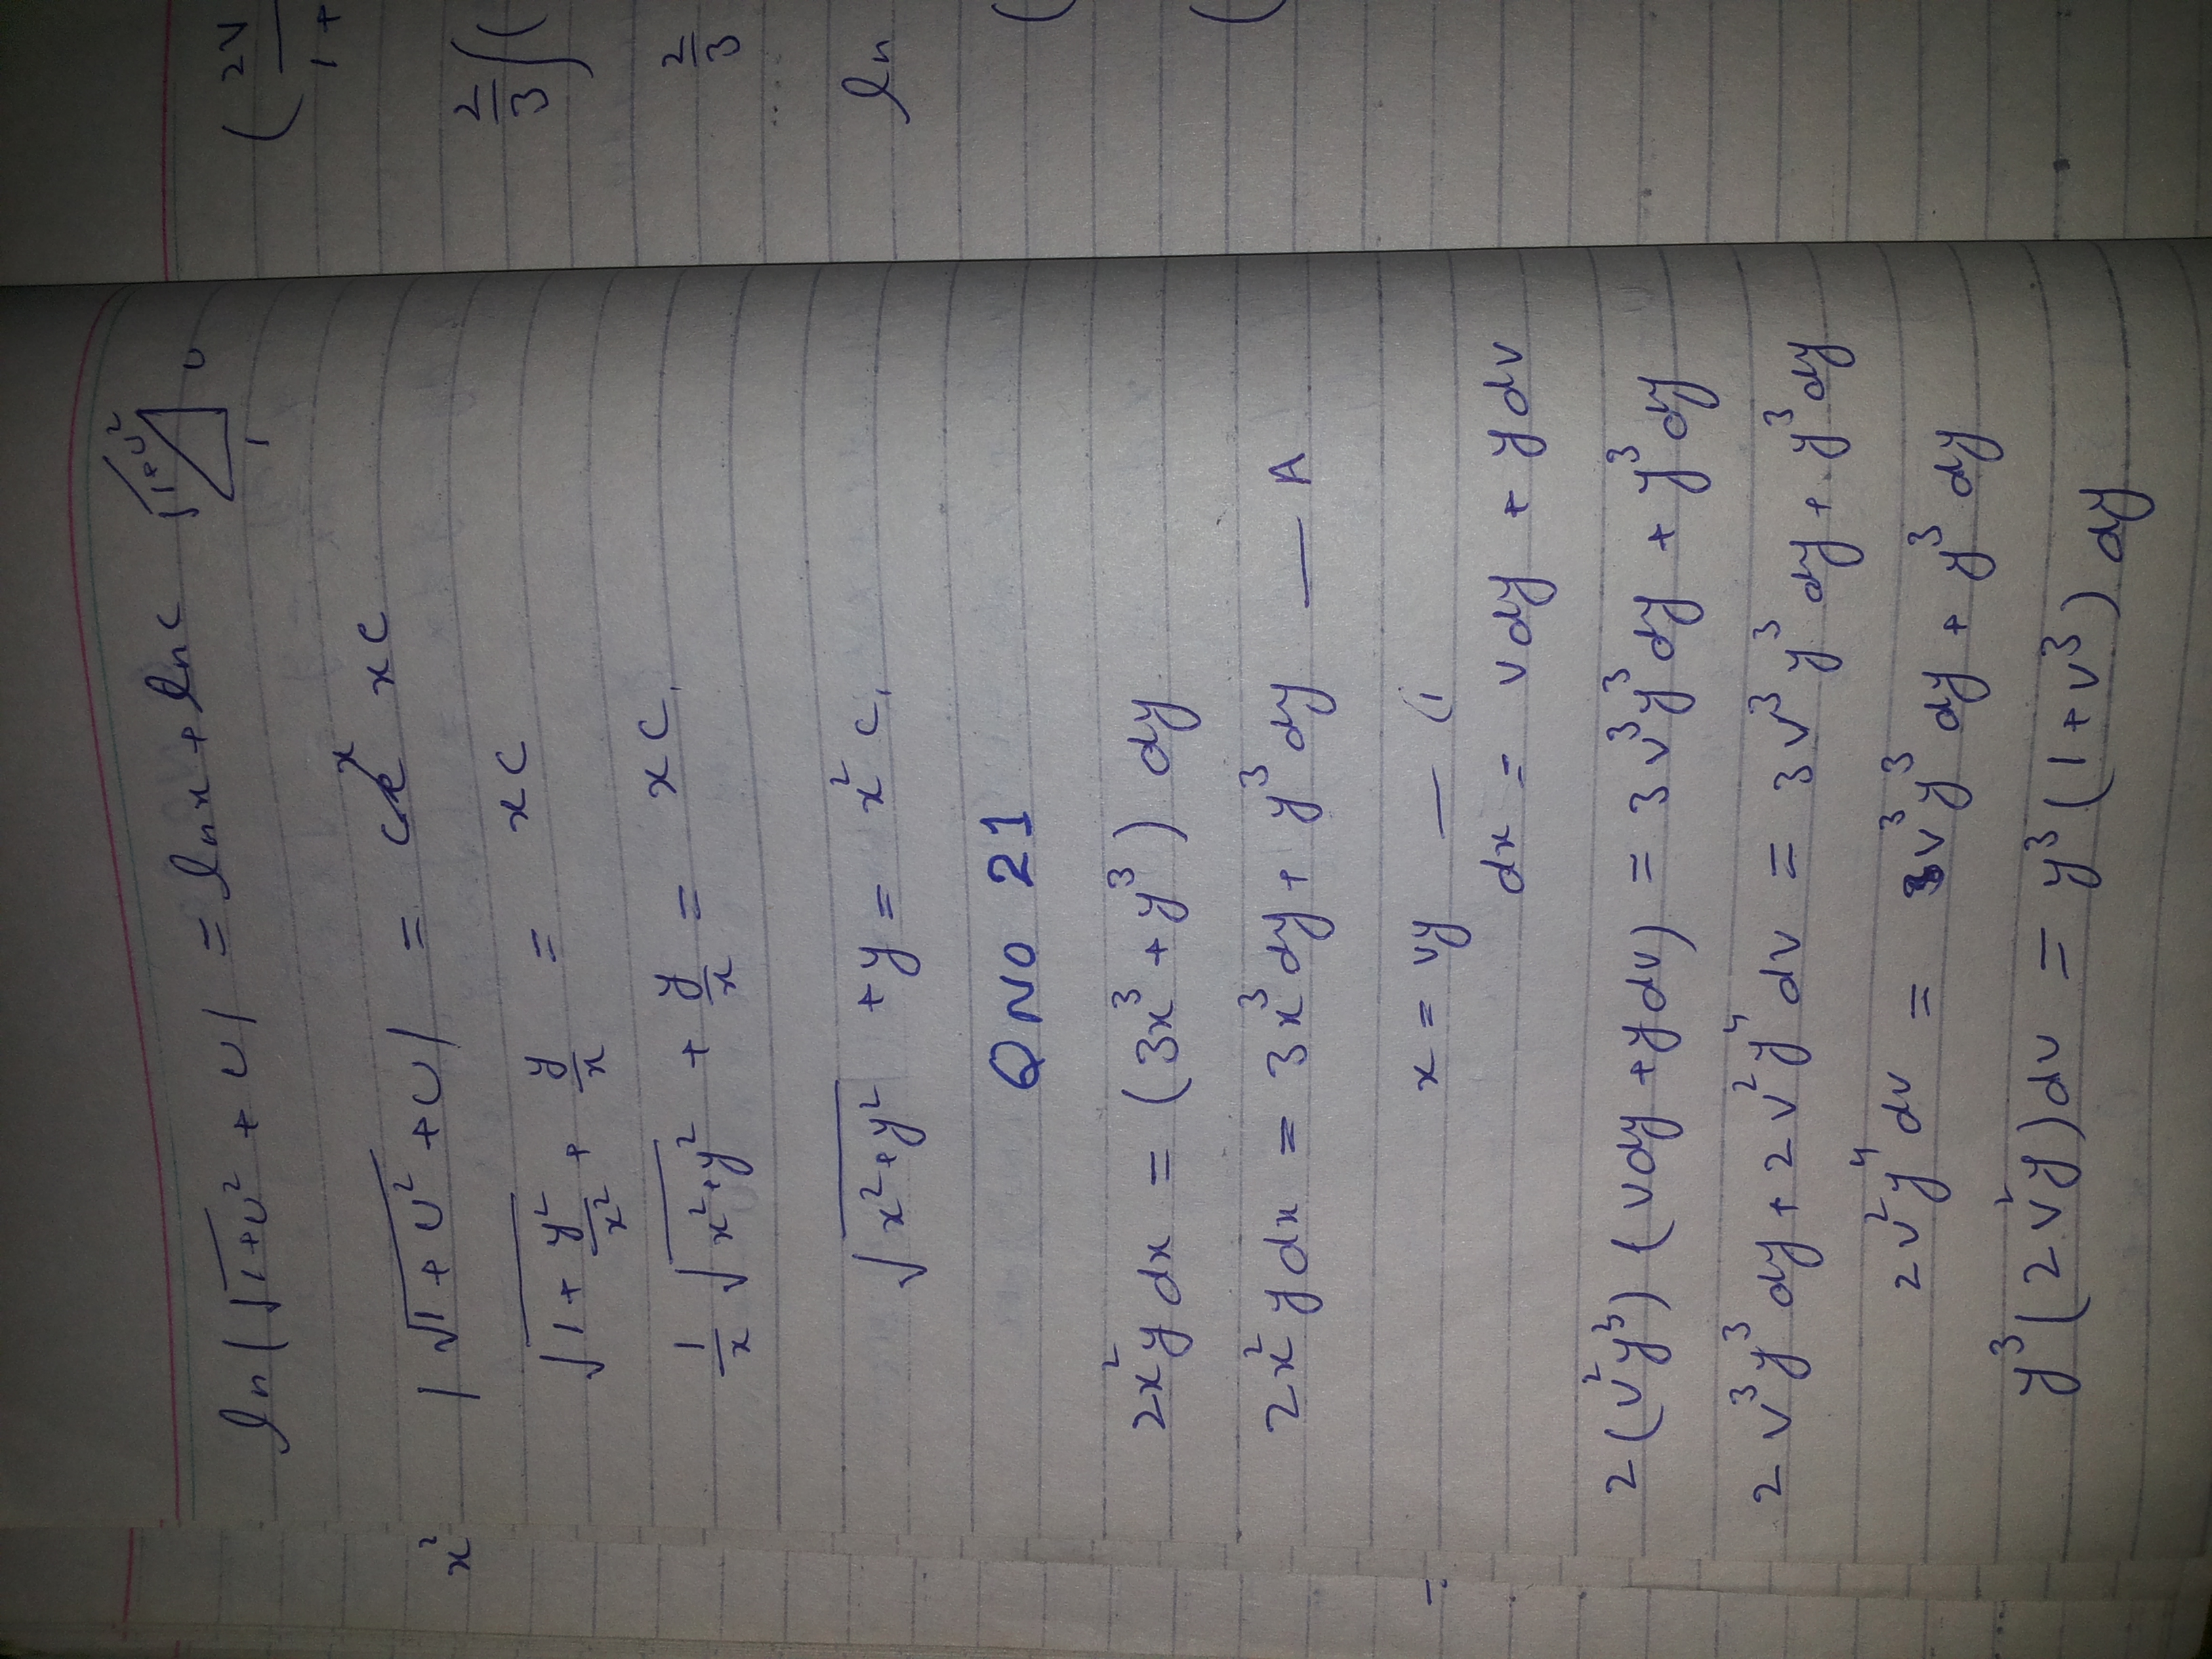 ln|√(1+U²) + U| = lnx + lnc
√(1+U²) U
1
x² |√(1+U²) + U| = xc
√(1 + y²/x²) + y/x = xc
1/x √(x²+y²) + y/x = xc₁
√(x²+y²) + y = x²c₁
Q NO 21
2x²y dx = (3x³ + y³) dy
2x²y dx = 3x³dy + y³dy — A
x = vy — (1
dx = vdy + ydv
2(v²y³) (vdy + ydv) = 3v³y³dy + y³dy
2v³y³dy + 2v²y⁴dv = 3v³y³dy + y³dy
2v²y⁴dv = v³y³dy + y³dy
y³(2v²y)dv = y³(1+v³) dy
(2v
1+
2/3 ∫(
2/3
ln
(
(